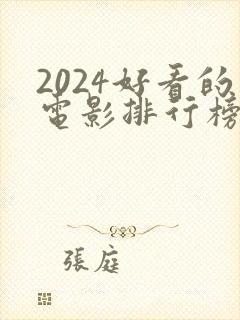 2024好看的
电影排行榜
張庭